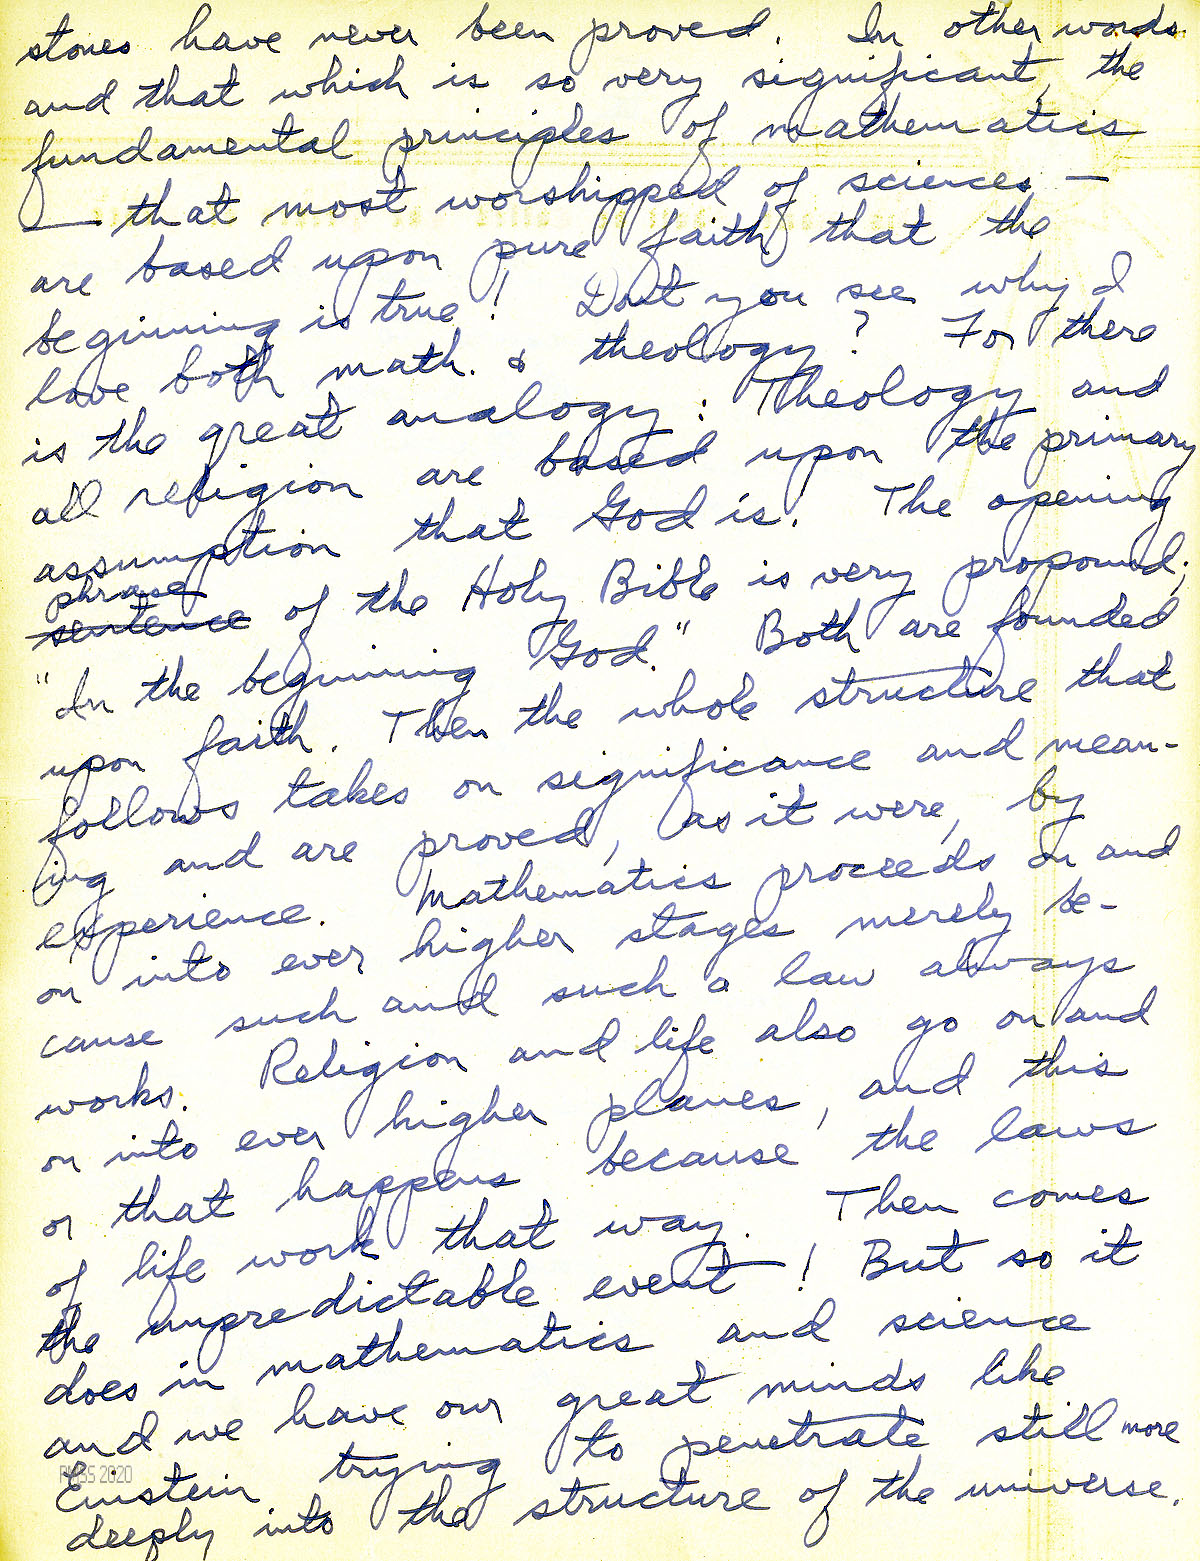 stones have never been proved. In other words
and that which is so very significant, the
fundamental principles of mathematics
— that most worshipped of sciences —
are based upon pure faith that the
beginning is true! Dont you see why I
love both math. & theology? For there
is the great analogy: Theology and
all religion are based upon the primary
assumption that God is. The opening
phrase
sentence of the Holy Bible is very profound;
"In the beginning God." Both are founded
upon faith. Then the whole structure that
follows takes on significance and mean-
ing and are proved, as it were, by
experience. Mathematics proceeds on and
on into ever higher stages merely be-
cause such and such a law always
works. Religion and life also go on and
on into ever higher planes, and this
or that happens because the laws
of life work that way. Then comes
the unpredictable event! But so it
does in mathematics and science
and we have our great minds like
Einstein trying to penetrate still more
deeply into the structure of the universe.
PMSS 2020